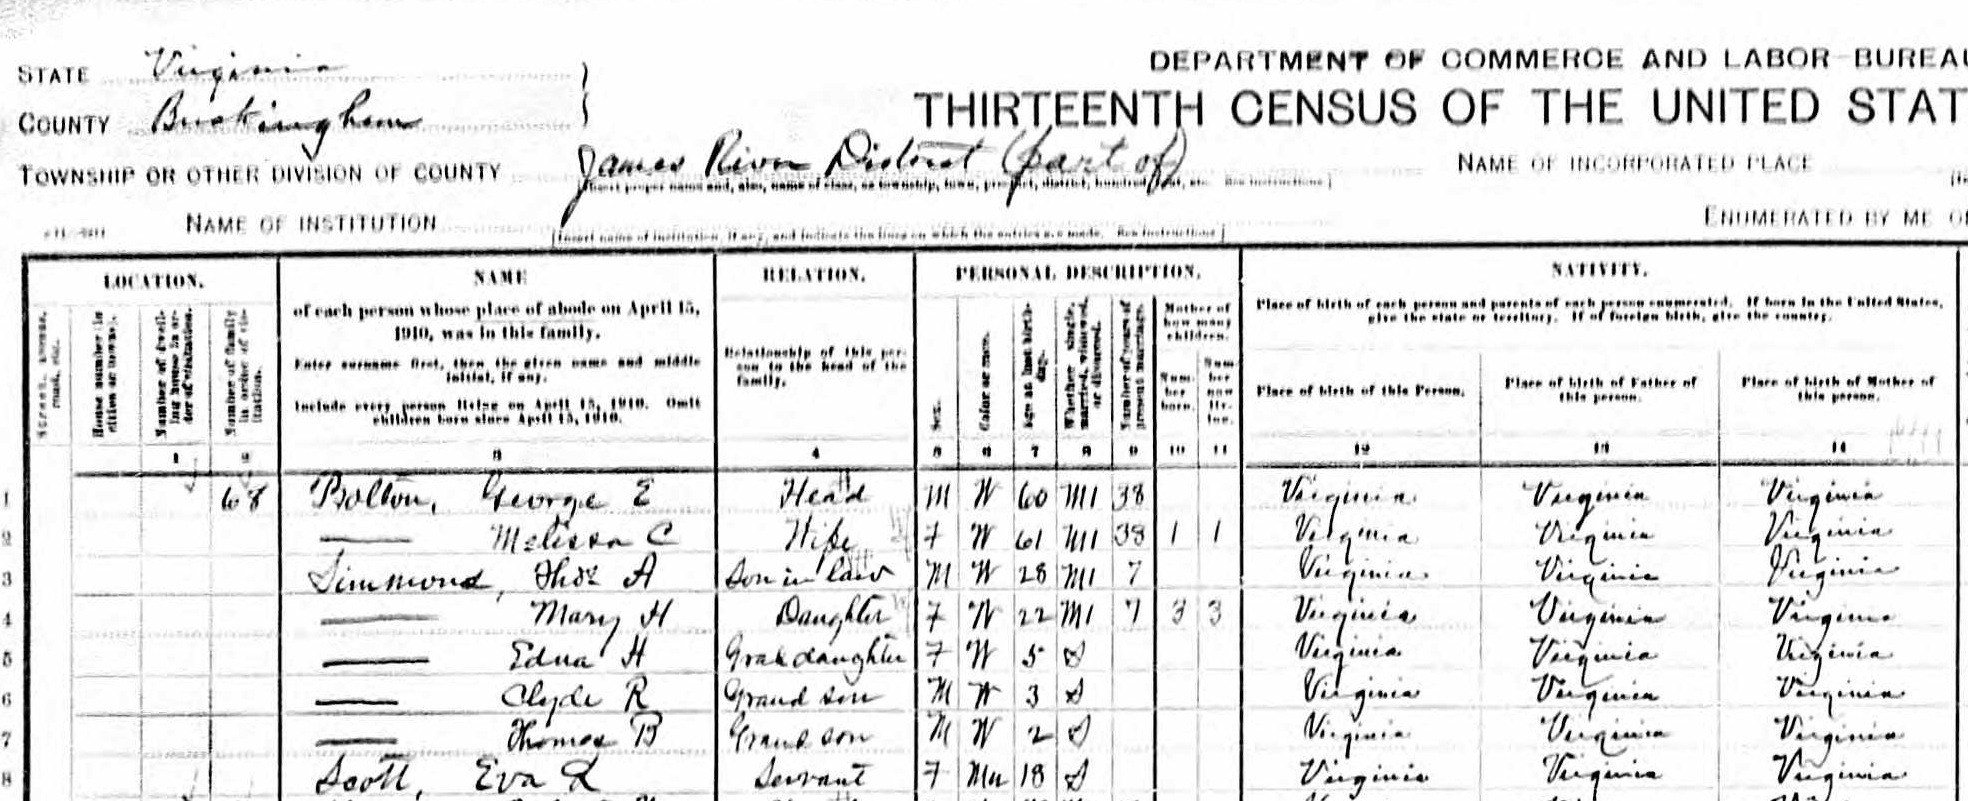 STATE Virginia
DEPARTMENT OF COMMERCE AND LABOR—BUREAU
COUNTY Buckingham
THIRTEENTH CENSUS OF THE UNITED STAT
TOWNSHIP OR OTHER DIVISION OF COUNTY James River District (part of)
NAME OF INCORPORATED PLACE
NAME OF INSTITUTION
[Insert name of institution, if any, and indicate the lines on which the entries are made. See instructions.]
ENUMERATED BY ME O
LOCATION. NAME RELATION. PERSONAL DESCRIPTION. NATIVITY.
of each person whose place of abode on April 15, 1910, was in this family.
Enter surname first, then the given name and middle initial, if any.
Include every person living on April 15, 1910. Omit children born since April 15, 1910.
Relationship of this person to the head of the family.
House number (in cities or towns).
Number of dwelling house in order of visitation.
Number of family in order of visitation.
Sex.
Color or race.
Age at last birthday.
Whether single, married, widowed, or divorced.
Number of years of present marriage.
Mother of how many children.
Number born.
Number now living.
Place of birth of each person and parents of each person enumerated. If born in the United States, give the state or territory. If of foreign birth, give the country.
Place of birth of this Person.
Place of birth of Father of this person.
Place of birth of Mother of this person.
1 2 3 4 5 6 7 8 9 10 11 12 13 14
1 68 Bolton, George E Head M W 60 M1 38 Virginia Virginia Virginia
2 —— Melissa C Wife F W 61 M1 38 1 1 Virginia Virginia Virginia
3 Simmond, Thos A Son in law M W 28 M1 7 Virginia Virginia Virginia
4 —— Mary H Daughter F W 22 M1 7 3 3 Virginia Virginia Virginia
5 —— Edna H Gran daughter F W 5 S Virginia Virginia Virginia
6 —— Clyde R Grand son M W 3 S Virginia Virginia Virginia
7 —— Thomas B Grand son M W 2 S Virginia Virginia Virginia
8 Scott, Eva L Servant F Mu 18 S Virginia Virginia Virginia